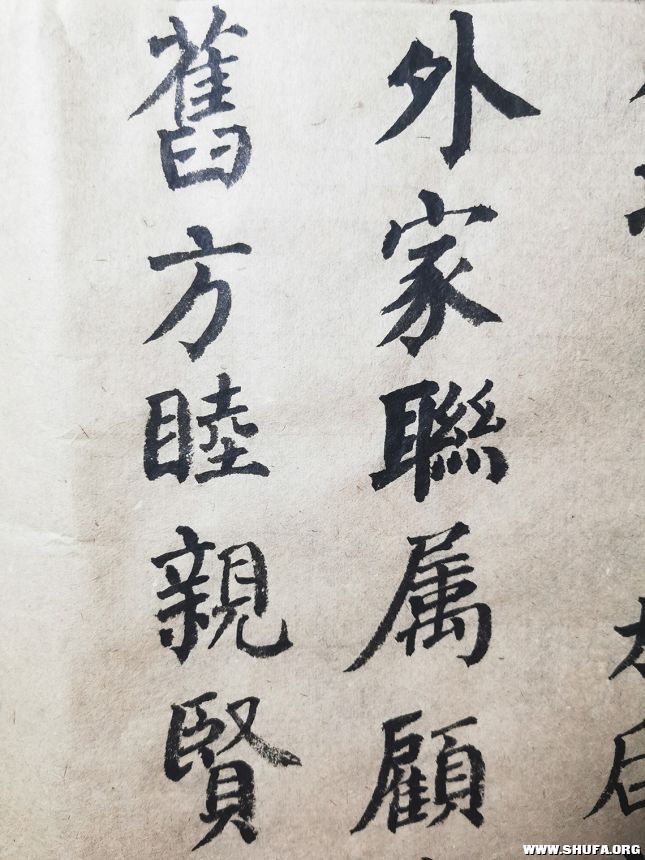 外家聯属顧
舊方睦親賢
WWW.SHUFA.ORG